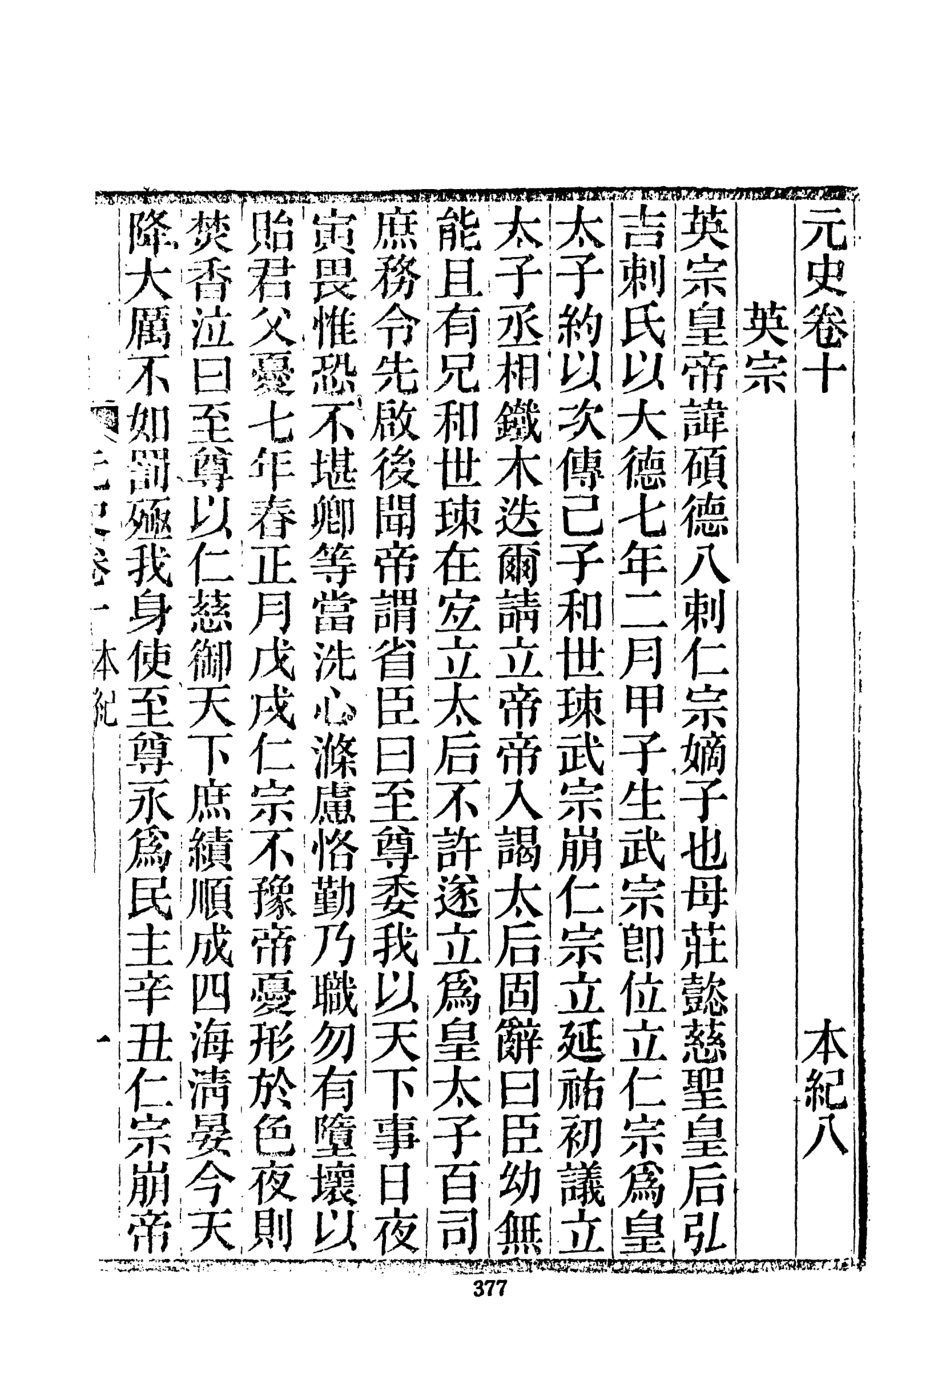 元史卷十　本紀八
英宗
英宗皇帝諱碩德八剌仁宗嫡子也母莊懿慈聖皇后弘
吉剌氏以大德七年二月甲子生武宗卽位立仁宗爲皇
太子約以次傳己子和世㻋武宗崩仁宗立延祐初議立
太子丞相鐵木迭爾請立帝帝入謁太后固辭曰臣幼無
能且有兄和世㻋在宐立太后不許遂立爲皇太子百司
庶務令先啟後聞帝謂省臣曰至尊委我以天下事日夜
寅畏惟恐不堪卿等當洗心滌慮恪勤乃職勿有墮壞以
貽君父憂七年春正月戊戌仁宗不豫帝憂形於色夜則
焚香泣曰至尊以仁慈御天下庶績順成四海淸晏今天
降大厲不如罰殛我身使至尊永爲民主辛丑仁宗崩帝
元史卷十 本紀 一
377